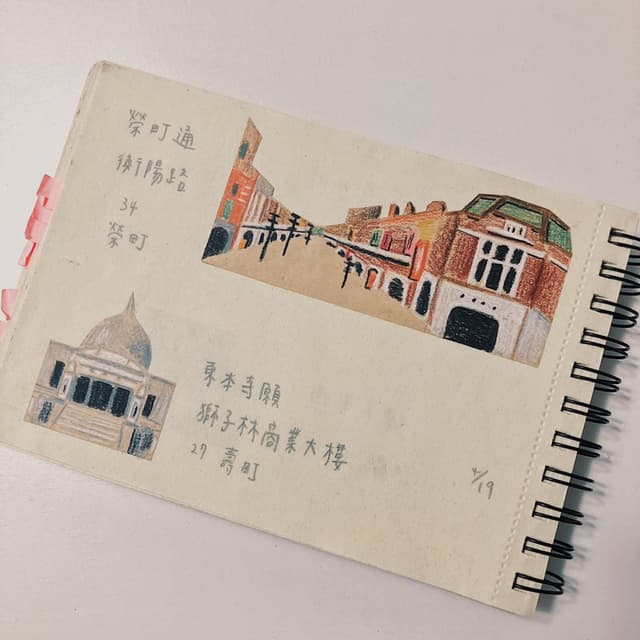 榮町通
衡陽路
34
榮町
東本寺願
獅子林商業大樓
27 壽町
4/19